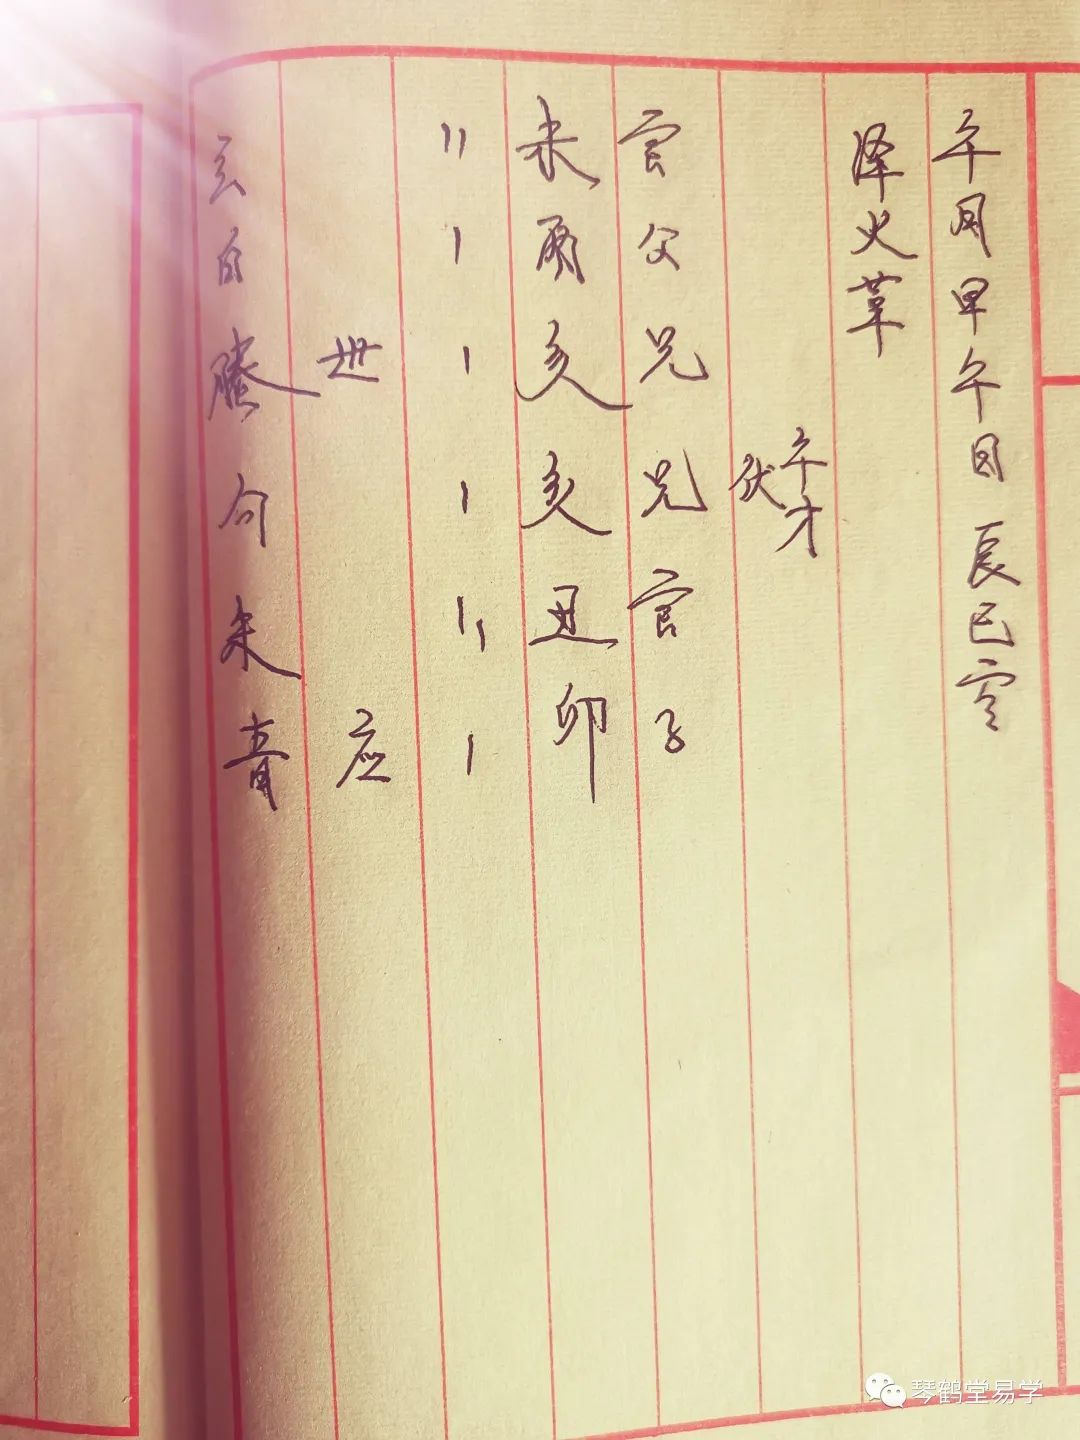 午月甲午日 辰巳空
泽火革
午才
伏
官父兄兄官子
未酉亥亥丑卯
世 应
玄白螣勾朱青
琴鹤堂易学